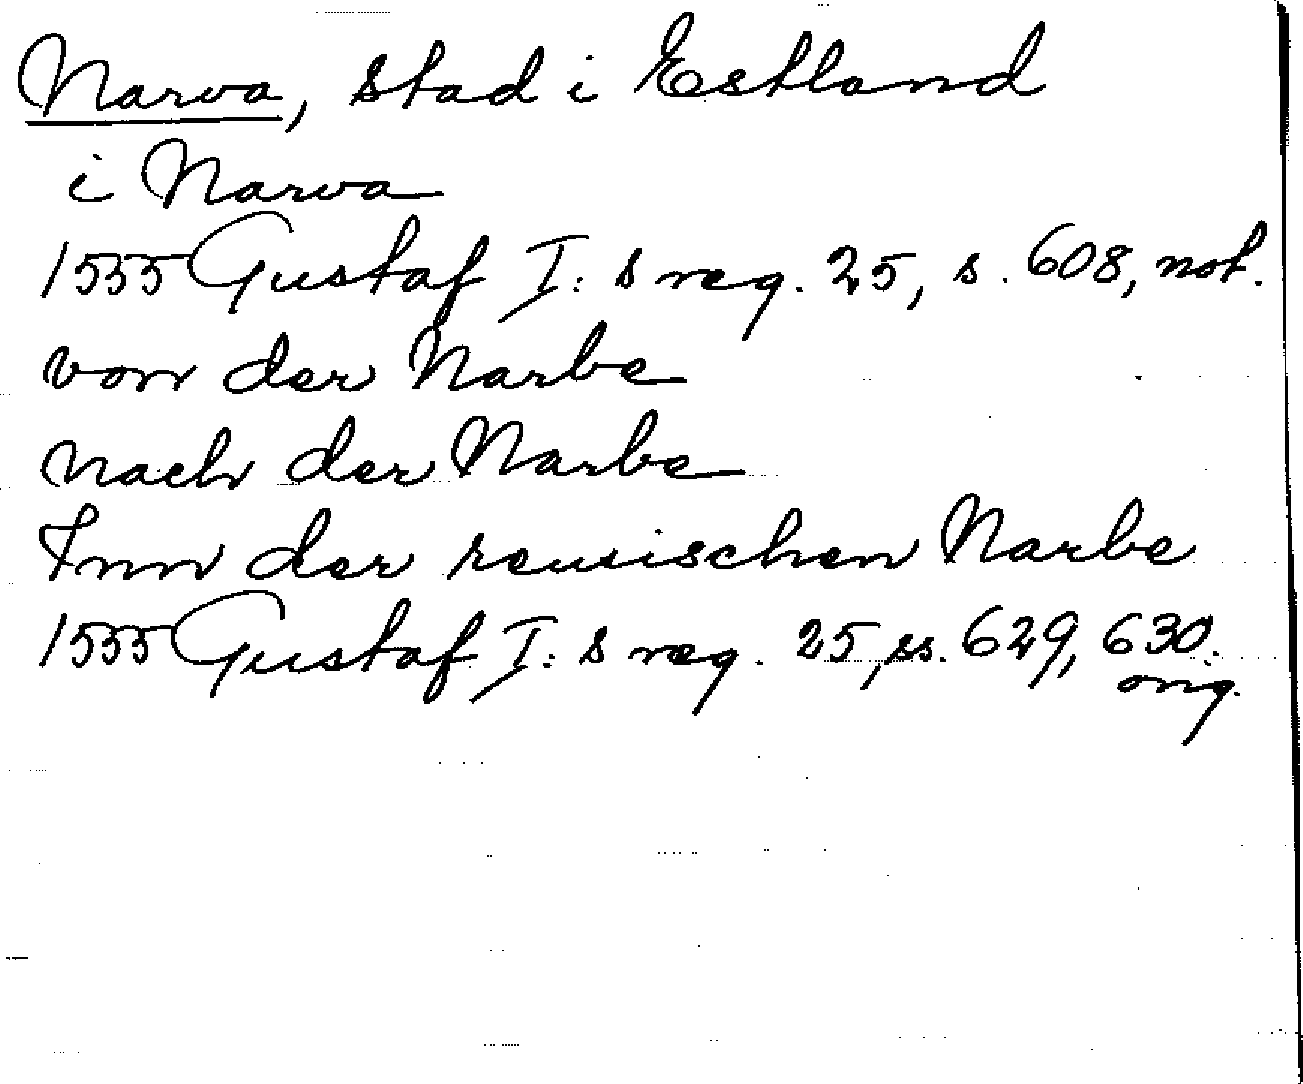 Narva, stad i Estland
i Narva
1555 Gustaf I: s reg. 25, s. 608, not.
von der Narbe
nach der Narbe
Inn der reusischen Narbe
1555 Gustaf I: s reg. 25, ss. 629, 630.
orig.